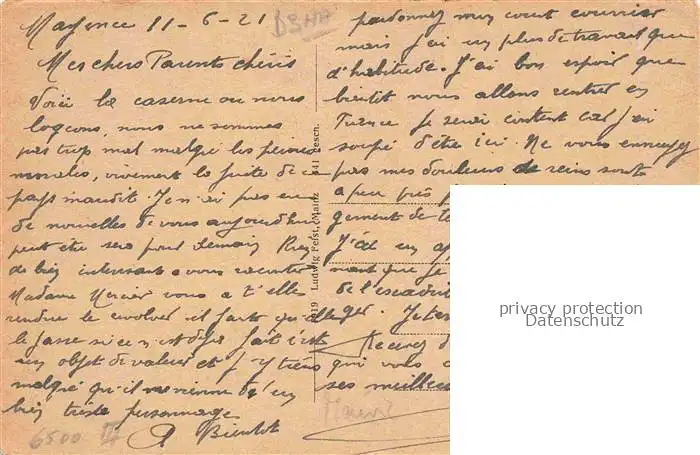 Mayence 11-6-21
Mes chers Parents chéris
Voici la caserne ou nous
logeons, nous ne sommes
pas trop mal malgré les
morales, vivement la fuite de ce
pays maudit. Je n'ai pas eu
de nouvelles de vous aujourdhui
peut être sera pour demain Rien
de bien interessant a vous raconter
Madame Mercier vous a t'elle
rendue le revolver il faut qu'elle
le fasse si ce n'est deja fait c'est
un objet de valeur et j'y tiens
malgré qu'il me vienne d'un
bien triste personnage
A Bientot
pardonnez mon court courrier
mais j'ai un plus de travail que
d'habitude. J'ai bon espoir que
bientôt nous allons rentrer en
France je serai content car j'ai
soupé d'être ici. Ne vous ennuyez
pas mes douleurs de reins sont
a peu près
gement de
J'ai un
nant que je
de l'escadri
ger. Je
Recevez d
qui vous
ses meilleu
19 Ludwig Feist, Mainz
6500
privacy protection
Datenschutz